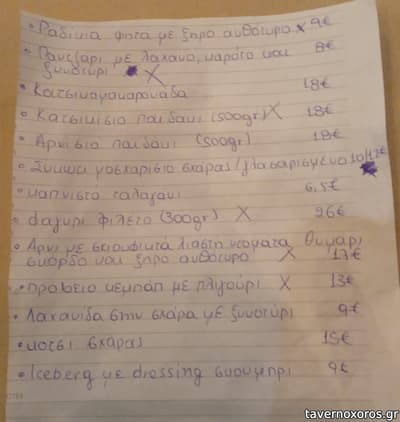 • Ραδίκια φέτα με ξηρό ανθότυρο x 9€
• Παντζάρι με λάχανο, καρότο και 8€
ξυνοτύρι X
• Κατσικομακαρονάδα 18€
• Κατσικίσιο παιδάκι (500gr) X 18€
• Αρνίσιο παιδάκι (500gr) 18€
• Συκώτι μοσχαρίσιο σχάρας/γλασαρισμένο 10/12€
• καπνιστό ταλαγάνι 6,5€
• Φαγκρί φιλέτο (300gr) X 26€
• Αρνί με λιαστή ντομάτα θυμάρι
σκόρδο και ξηρό ανθότυρο x 17€
• πρόβειο κεμπάπ με πλιγούρι X 13€
• Λαχανίδα στην σχάρα με ξυνοτύρι 9€
• κότσι σχάρας 15€
• Iceberg με dressing σκουμπρί 9€
tavernoxoros.gr